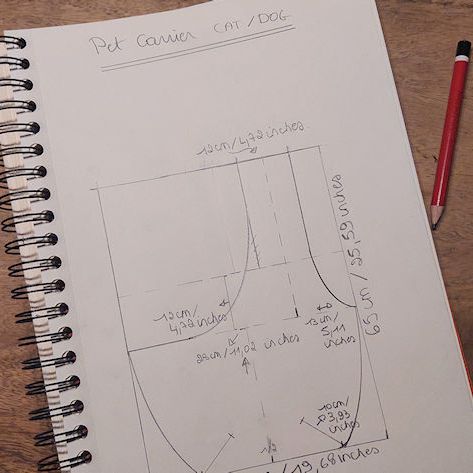 Pet Carrier CAT/DOG
12cm/4,72 inches
65cm/25,59 inches
12cm/
4,72 inches
13cm/
5,11
inches
28cm/11,02 inches
10cm/
3,93
inches
1/2
/19,68 inches